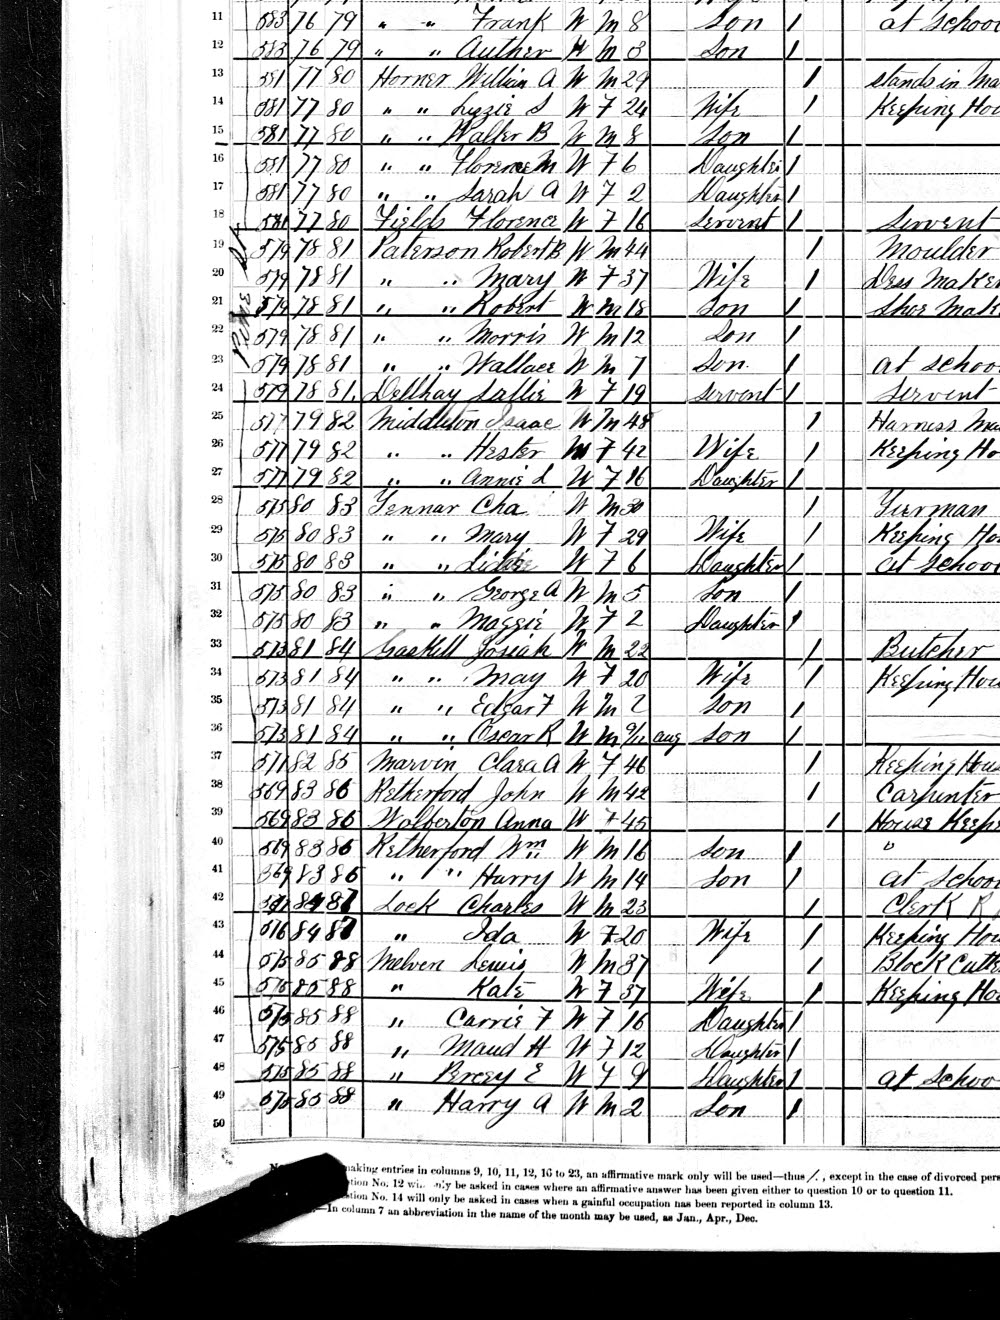 11 583 76 79 " " Frank W M 8 Son / at school
12 583 76 79 " " Auther W M 3 Son /
13 581 77 80 Horner William A W M 29 / stands in Ma
14 581 77 80 " " Lizzie S W F 24 Wife / Keeping Hou
15 581 77 80 " " Walter B W M 8 Son /
16 581 77 80 " " Florence M W F 6 Daughter /
17 581 77 80 " " Sarah A W F 2 Daughter /
18 581 77 80 Fields Florence W F 16 Servent / Servent
Pine St
19 579 78 81 Paterson Robert B W M 44 / Moulder
20 579 78 81 " " Mary W F 37 Wife / Dess Maker
21 579 78 81 " " Robert W M 18 Son / Shoe Mak
22 579 78 81 " " Morris W M 12 Son /
23 579 78 81 " " Wallace W M 7 Son / at school
24 579 78 81 Dellhay Sallie W F 19 Servent / Servent
25 577 79 82 Middleton Isaac W M 48 / Harness Ma
26 577 79 82 " " Hester W F 42 Wife / Keeping Ho
27 577 79 82 " " Annie L W F 16 Daughter /
28 575 80 83 Yennar Cha W M 30 / Yierman
29 575 80 83 " " Mary W F 29 Wife / Keeping Hou
30 575 80 83 " " W F 6 Daughter / at School
31 575 80 83 " " George A W M 5 Son /
32 575 80 83 " " Maggie W F 2 Daughter /
33 573 81 84 Gaskill Josiah W M 22 / Butcher
34 573 81 84 " " May W F 20 Wife / Keeping Hou
35 573 81 84 " " Edgar F W M 2 Son /
36 573 81 84 " " Oscar R W M 9/12 aug Son /
37 571 82 85 Marvin Clara A W F 46 / Keeping Hous
38 569 83 86 Retherford John W M 42 / Carpinter
39 569 83 86 Wolberton Anna W F 45 / House Keepe
40 569 83 86 Retherford Wm W M 16 Son / "
41 569 83 86 " " Harry W M 14 Son / at School
42 84 87 Lock Charles W M 23 / Clerk R
43 516 84 87 " Ida W F 20 Wife / Keeping Hou
44 515 85 88 Melven Lewis W M 37 / Block Cutte
45 515 85 88 " Kate W F 37 Wife / Keeping Hou
46 575 85 88 " Carrie F W F 16 Daughter /
47 575 85 88 " Maud H W F 12 Daughter /
48 515 85 88 " E W F 9 Daughter / at schoo
49 575 85 88 " Harry A W M 2 Son /
50
making entries in columns 9, 10, 11, 12, 16 to 23, an affirmative mark only will be used—thus /. , except in the case of divorced pers
tion No. 12 will only be asked in cases where an affirmative answer has been given either to question 10 or to question 11.
stion No. 14 will only be asked in cases when a gainful occupation has been reported in column 13.
—In column 7 an abbreviation in the name of the month may be used, as Jan., Apr., Dec.